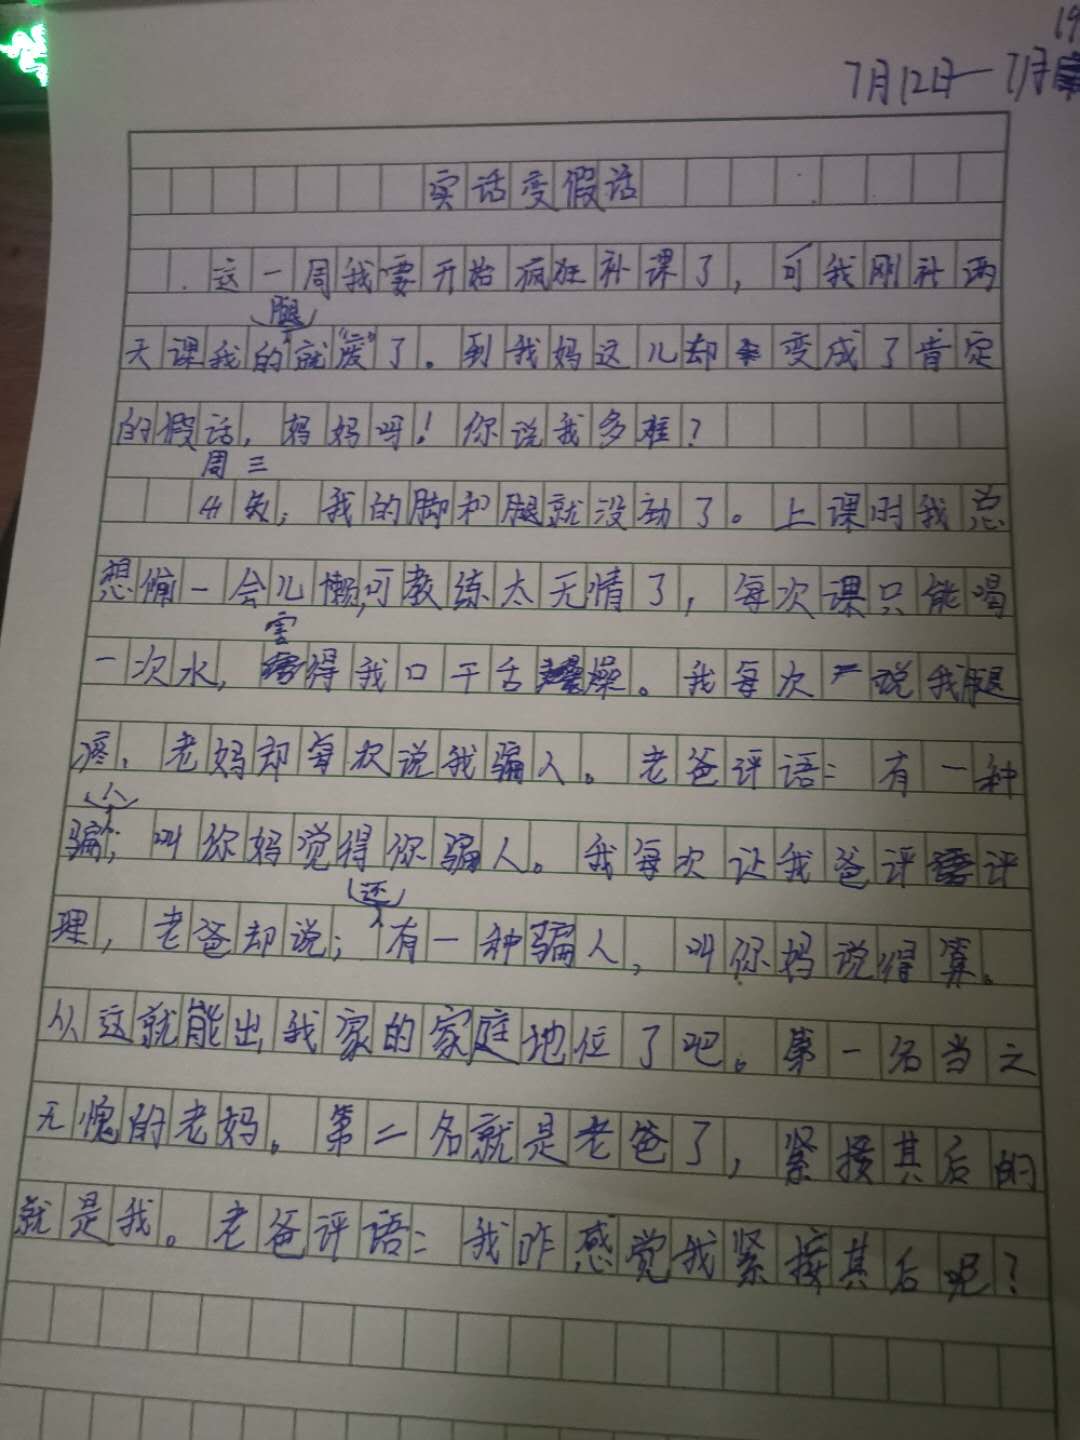 19
7月12日—7月
实话变假话
这一周我要开始疯狂补课了，可我刚补两
天课我的腿就"废"了。到我妈这儿却变成了肯定
的假话，妈妈呀！你说我多难？
周三，我的脚和腿就没劲了。上课时我总
想偷一会儿懒，可教练太无情了，每次课只能喝
一次水，害得我口干舌燥。我每次说我腿
疼，老妈却每次说我骗人。老爸评语：有一种
骗人，叫你妈觉得你骗人。我每次让我爸评评
理，老爸却说；还有一种骗人，叫你妈说得算。
从这就能出我家的家庭地位了吧。第一名当之
无愧的老妈。第二名就是老爸了，紧接其后的
就是我。老爸评语：我咋感觉我紧接其后呢？